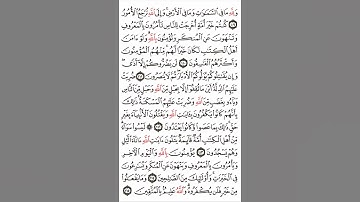 وَلِلَّهِ مَا فِي ٱلسَّمَٰوَٰتِ وَمَا فِي ٱلْأَرْضِ وَإِلَى ٱللَّهِ تُرْجَعُ ٱلْأُمُورُ
١٠٩ كُنتُمْ خَيْرَ أُمَّةٍ أُخْرِجَتْ لِلنَّاسِ تَأْمُرُونَ بِٱلْمَعْرُوفِ
وَتَنْهَوْنَ عَنِ ٱلْمُنكَرِ وَتُؤْمِنُونَ بِٱللَّهِ وَلَوْ ءَامَنَ
أَهْلُ ٱلْكِتَٰبِ لَكَانَ خَيْرًا لَّهُم مِّنْهُمُ ٱلْمُؤْمِنُونَ
وَأَكْثَرُهُمُ ٱلْفَٰسِقُونَ ١١٠ لَن يَضُرُّوكُمْ إِلَّآ أَذًى
وَإِن يُقَٰتِلُوكُمْ يُوَلُّوكُمُ ٱلْأَدْبَارَ ثُمَّ لَا يُنصَرُونَ ١١١ ضُرِبَتْ
عَلَيْهِمُ ٱلذِّلَّةُ أَيْنَ مَا ثُقِفُوٓا۟ إِلَّا بِحَبْلٍ مِّنَ ٱللَّهِ وَحَبْلٍ مِّنَ ٱلنَّاسِ
وَبَآءُو بِغَضَبٍ مِّنَ ٱللَّهِ وَضُرِبَتْ عَلَيْهِمُ ٱلْمَسْكَنَةُ ذَٰلِكَ
بِأَنَّهُمْ كَانُوا۟ يَكْفُرُونَ بِـَٔايَٰتِ ٱللَّهِ وَيَقْتُلُونَ ٱلْأَنۢبِيَآءَ بِغَيْرِ
حَقٍّ ذَٰلِكَ بِمَا عَصَوا۟ وَّكَانُوا۟ يَعْتَدُونَ ١١٢ لَيْسُوا۟ سَوَآءً
مِّنْ أَهْلِ ٱلْكِتَٰبِ أُمَّةٌ قَآئِمَةٌ يَتْلُونَ ءَايَٰتِ ٱللَّهِ ءَانَآءَ ٱلَّيْلِ
وَهُمْ يَسْجُدُونَ ١١٣ يُؤْمِنُونَ بِٱللَّهِ وَٱلْيَوْمِ ٱلْءَاخِرِ
وَيَأْمُرُونَ بِٱلْمَعْرُوفِ وَيَنْهَوْنَ عَنِ ٱلْمُنكَرِ وَيُسَٰرِعُونَ
فِي ٱلْخَيْرَٰتِ وَأُو۟لَٰٓئِكَ مِنَ ٱلصَّٰلِحِينَ ١١٤ وَمَا يَفْعَلُوا۟
مِنْ خَيْرٍ فَلَن يُكْفَرُوهُ وَٱللَّهُ عَلِيمٌۢ بِٱلْمُتَّقِينَ ١١٥